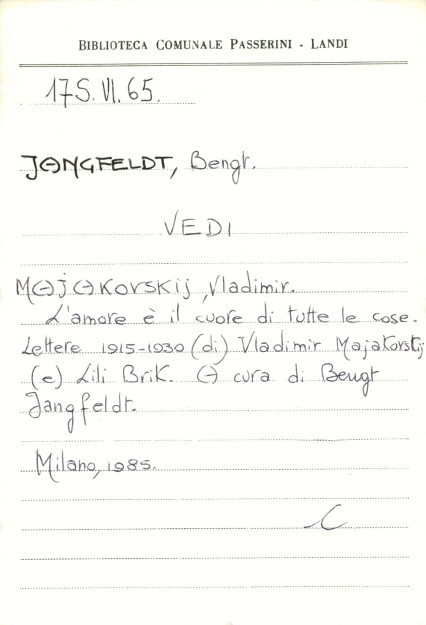 BIBLIOTECA COMUNALE PASSERINI - LANDI
17S.VI.65.
JANGFELDT, Bengt.
VEDI
MAJAKOVSKIJ, Vladimir.
L'amore è il cuore di tutte le cose.
Lettere 1915-1930 (di) Vladimir Majakovskij
(e) Lili Brik. A cura di Bengt
Jangfeldt.
Milano, 1985.
C